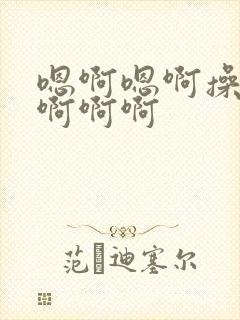 嗯啊嗯啊操
啊啊啊
范迪塞尔